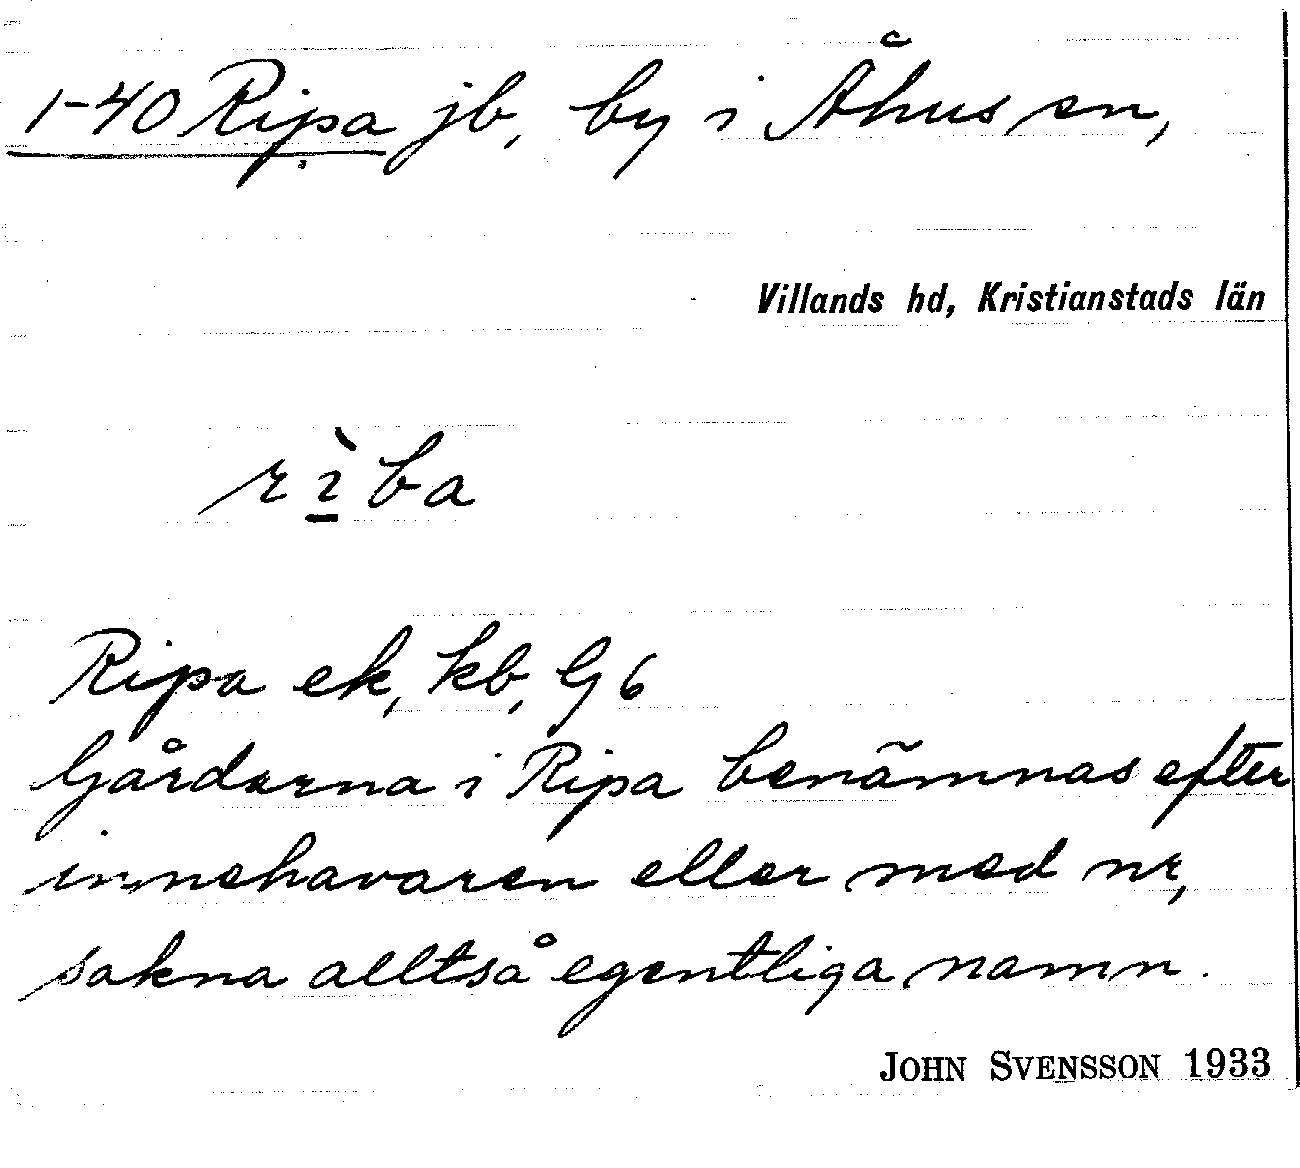 1-40 Ripa jb, by i Åhus sn,
Villands hd, Kristianstads län
rìba
Ripa ek, kb, G 6
Gårdarna i Ripa benämnas efter
innehavaren eller med nr,
sakna alltså egentliga namn.
JOHN SVENSSON 1933